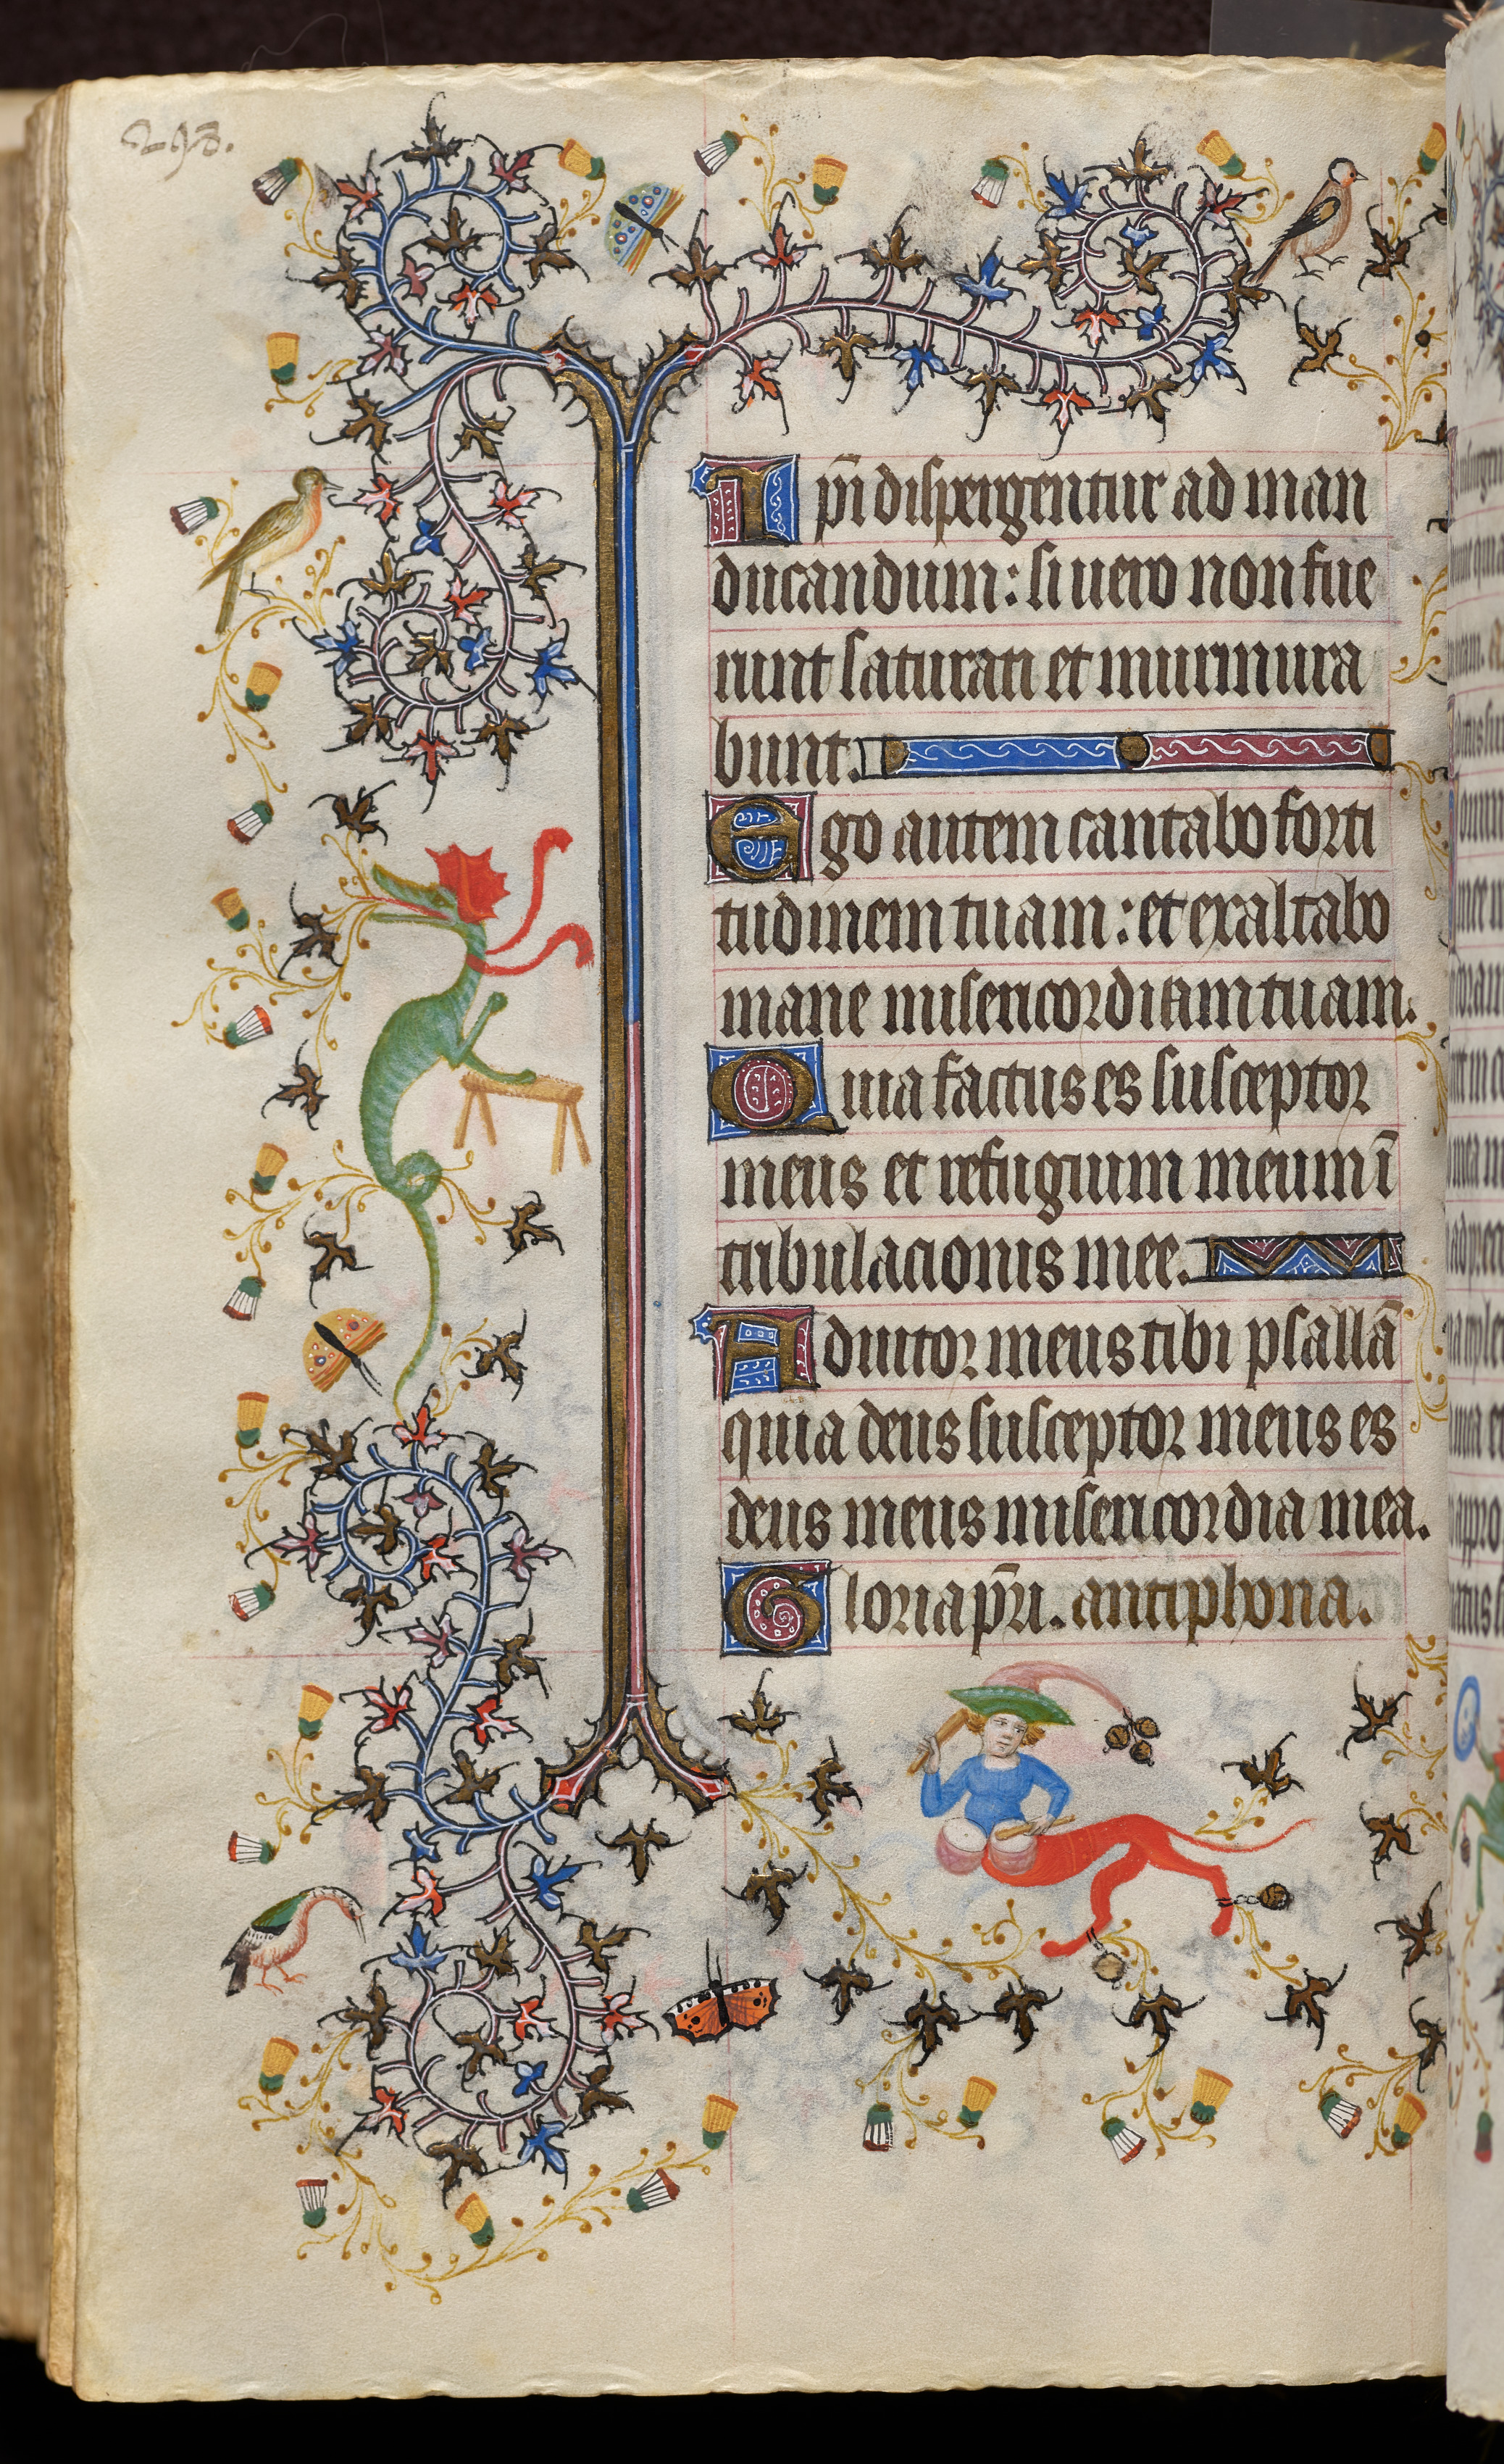 Ip̄i dispergentur ad man
ducandum: si uero non fue
runt saturati et murmura
bunt.
Ego autem cantabo forti
tudinem tuam: et exaltabo
mane misericordiam tuam.
Quia factus es susceptor
meus et refugium meum ī
tribulacionis mee.
Adiutor meus tibi psallā
quia deus susceptor meus es
deus meus misericordia mea.
Gloria pr̄i. antiphona.